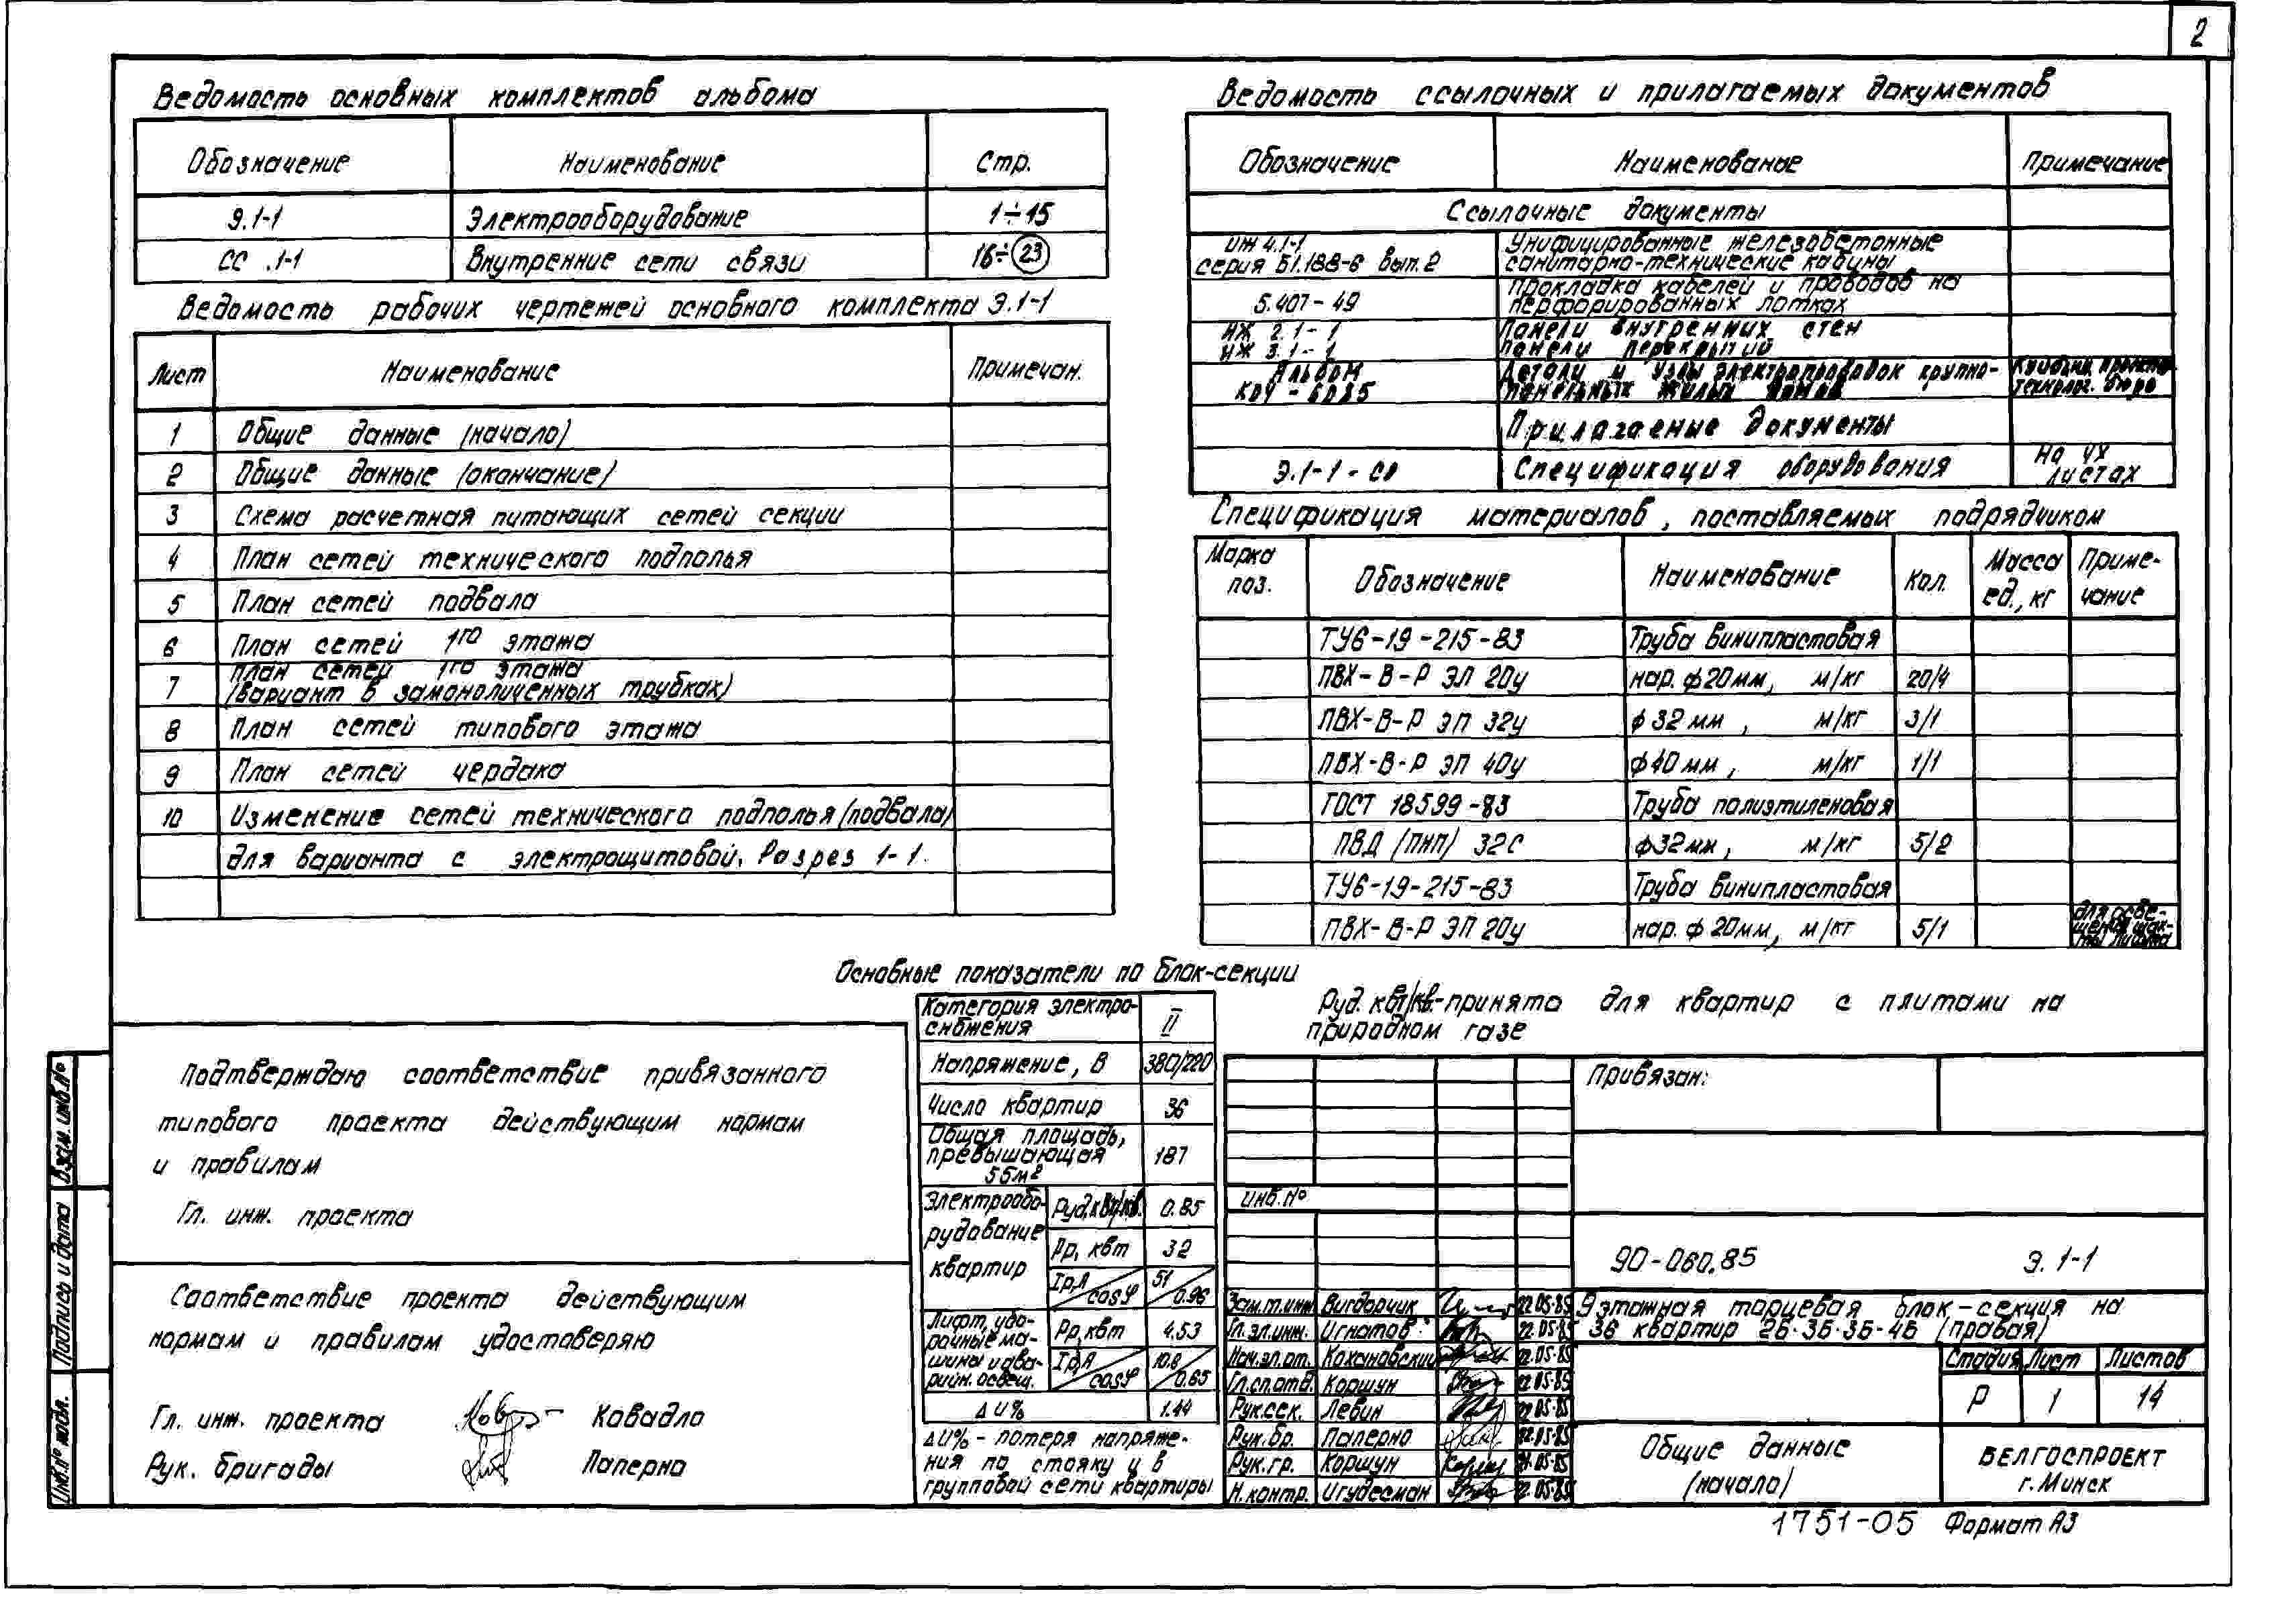 2
Ведомость основных комплектов альбома
Обозначение Наименование Стр.
Э.1-1 Электрооборудование 1÷15
СС .1-1 Внутренние сети связи 16÷23
Ведомость рабочих чертежей основного комплекта Э.1-1
Лист Наименование Примечан.
1 Общие данные (начало)
2 Общие данные (окончание)
3 Схема расчетная питающих сетей секции
4 План сетей технического подполья
5 План сетей подвала
6 План сетей 1го этажа
7 План сетей 1го этажа
(вариант в замоноличенных трубках)
8 План сетей типового этажа
9 План сетей чердака
10 Изменение сетей технического подполья (подвала)
для варианта с электрощитовой. Разрез 1-1.
Ведомость ссылочных и прилагаемых документов
Обозначение Наименование Примечание
Ссылочные документы
ИЖ 4.1-1 Унифицированные железобетонные
серия Б1.188-6 вып.2 санитарно-технические кабины
5.407-49 Прокладка кабелей и проводов на
перфорированных лотках
ИЖ 2.1-1 Панели внутренних стен
ИЖ 3.1-1 Панели перекрытий
Альбом Детали и узлы электропроводок крупно-
панельных жилых домов технолог. бюро
Прилагаемые документы
Э.1-1-СО Спецификация оборудования На 4х
листах
Спецификация материалов, поставляемых подрядчиком
Марка поз. Обозначение Наименование Кол. Масса ед., кг Примечание
ТУ6-19-215-83 Труба винипластовая
ПВХ-В-Р ЭП 20у нар. ф20мм, м/кг 20/4
ПВХ-В-Р ЭП 32у ф 32 мм, м/кг 3/1
ПВХ-В-Р ЭП 40у ф40 мм, м/кг 1/1
ГОСТ 18599-83 Труба полиэтиленовая
ПВД (ПНП) 32С ф32мм, м/кг 5/2
ТУ6-19-215-83 Труба винипластовая
ПВХ-В-Р ЭП 20у нар. ф 20мм, м/кг 5/1 для осве-
щения шах-
ты лифта
Основные показатели по блок-секции
Категория электро-
снабжения II
Напряжение, В 380/220
Число квартир 36
Общая площадь,
превышающая
55м2 187
Электрообо-
рудование
квартир
Руд.квт/кв. 0.85
Рр, квт 32
Iр,А/cosφ 51/0.96
Лифт, убо-
рочные ма-
шины и ава-
рийн. освещ.
Рр, квт 4.53
Iр,А/cosφ 10.8/0.65
ΔU% 1.44
ΔU% - потеря напряже-
ния по стояку и в
групповой сети квартиры
Руд. квт/кв.-принято для квартир с плитами на
природном газе
Подтверждаю соответствие привязанного
типового проекта действующим нормам
и правилам
Гл. инж. проекта
Соответствие проекта действующим
нормам и правилам удостоверяю
Гл. инж. проекта Ковадло
Рук. бригады Паперно
Взам. инв.№
Подпись и дата
Инв.№ подл.
Привязан:
инв.№
90-060.85 Э. 1-1
Зам.гл.инж. Вигдорчик 22.05.85
Гл.эл.инж. Игнатов 22.05.85
Нач.эл.от. Кохановский 22.05.85
Гл.сп.отд. Коршун 22.05.85
Рук.сек. Левин 22.05.85
Рук.бр. Паперно 22.05.85
Рук.гр. Коршун 21.05.85
Н.контр. Игудесман 22.05.85
9этажная торцевая блок-секция на
36 квартир 2Б·3Б·3Б-4Б (правая)
Стадия Лист Листов
Р 1 14
Общие данные
(начало)
БЕЛГОСПРОЕКТ
г. Минск
1751-05 Формат А3